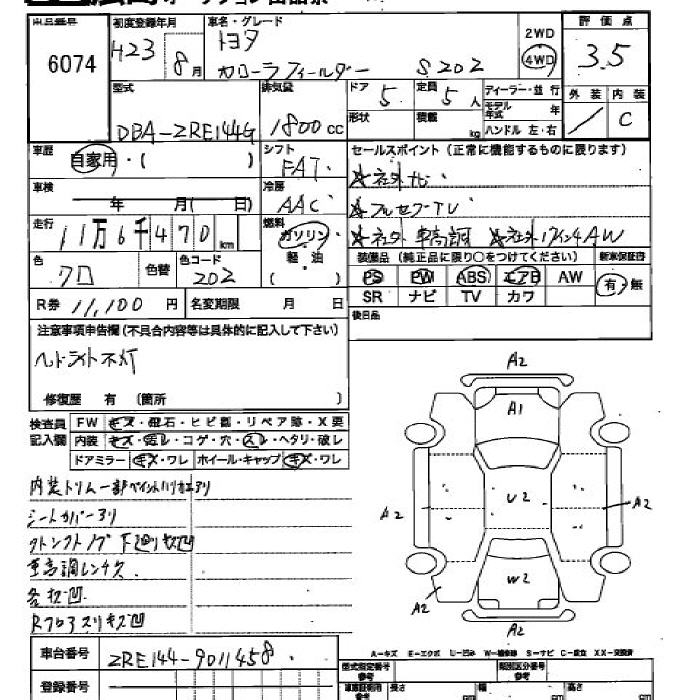 出品番号 初度登録年月 車名・グレード 評価点
6074 H23 8月 トヨタ 2WD 3.5
カローラフィールダー S202 4WD
型式 排気量 ドア 5 定員 5人 ディーラー・並行 外装 内装
モデル年式 年
DBA-ZRE144G 1800cc 形状 積載 kg ハンドル 左・右 C
車歴 自家用・( ) シフト セールスポイント(正常に機能するものに限ります)
FAT ★社外ナビ
車検 年 月( 日) 冷房 AAC ★フルセグTV
走行 11万6千470km 燃料 ガソリン ★社外車高調 ★社外17インチAW
軽油 ( )
装備品(純正品に限り○をつけてください) 新車保証書
色 クロ 色替 色コード 202 PS PW ABS エアB AW 有・無
R券 11,100円 名変期限 月 日 SR ナビ TV カワ
注意事項申告欄(不具合内容等は具体的に記入して下さい) 後日品
ヘッドライト不灯
修復歴 有 (箇所 )
検査員 FW キズ・飛石・ヒビ割・リペア跡・X要
記入欄 内装 キズ・汚レ・コゲ・穴・スレ・ヘタリ・破レ
ドアミラー キズ・ワレ ホイール・キャップ キズ・ワレ
内装トリム一部ペイントハガレアリ
シートカバーアリ
下廻リキズ凹
車高調レンチ欠
各キズ凹
Rフロアスリキズ凹
A2
A1
A2 U2 A2
W2
A2
A2
車台番号 ZRE144-9011458
登録番号
A-キズ E-エクボ U-凹み W-補修跡 S-サビ C-腐食 XX-交換済
型式指定番号 参考 類別区分番号 参考
長さ 幅 高さ